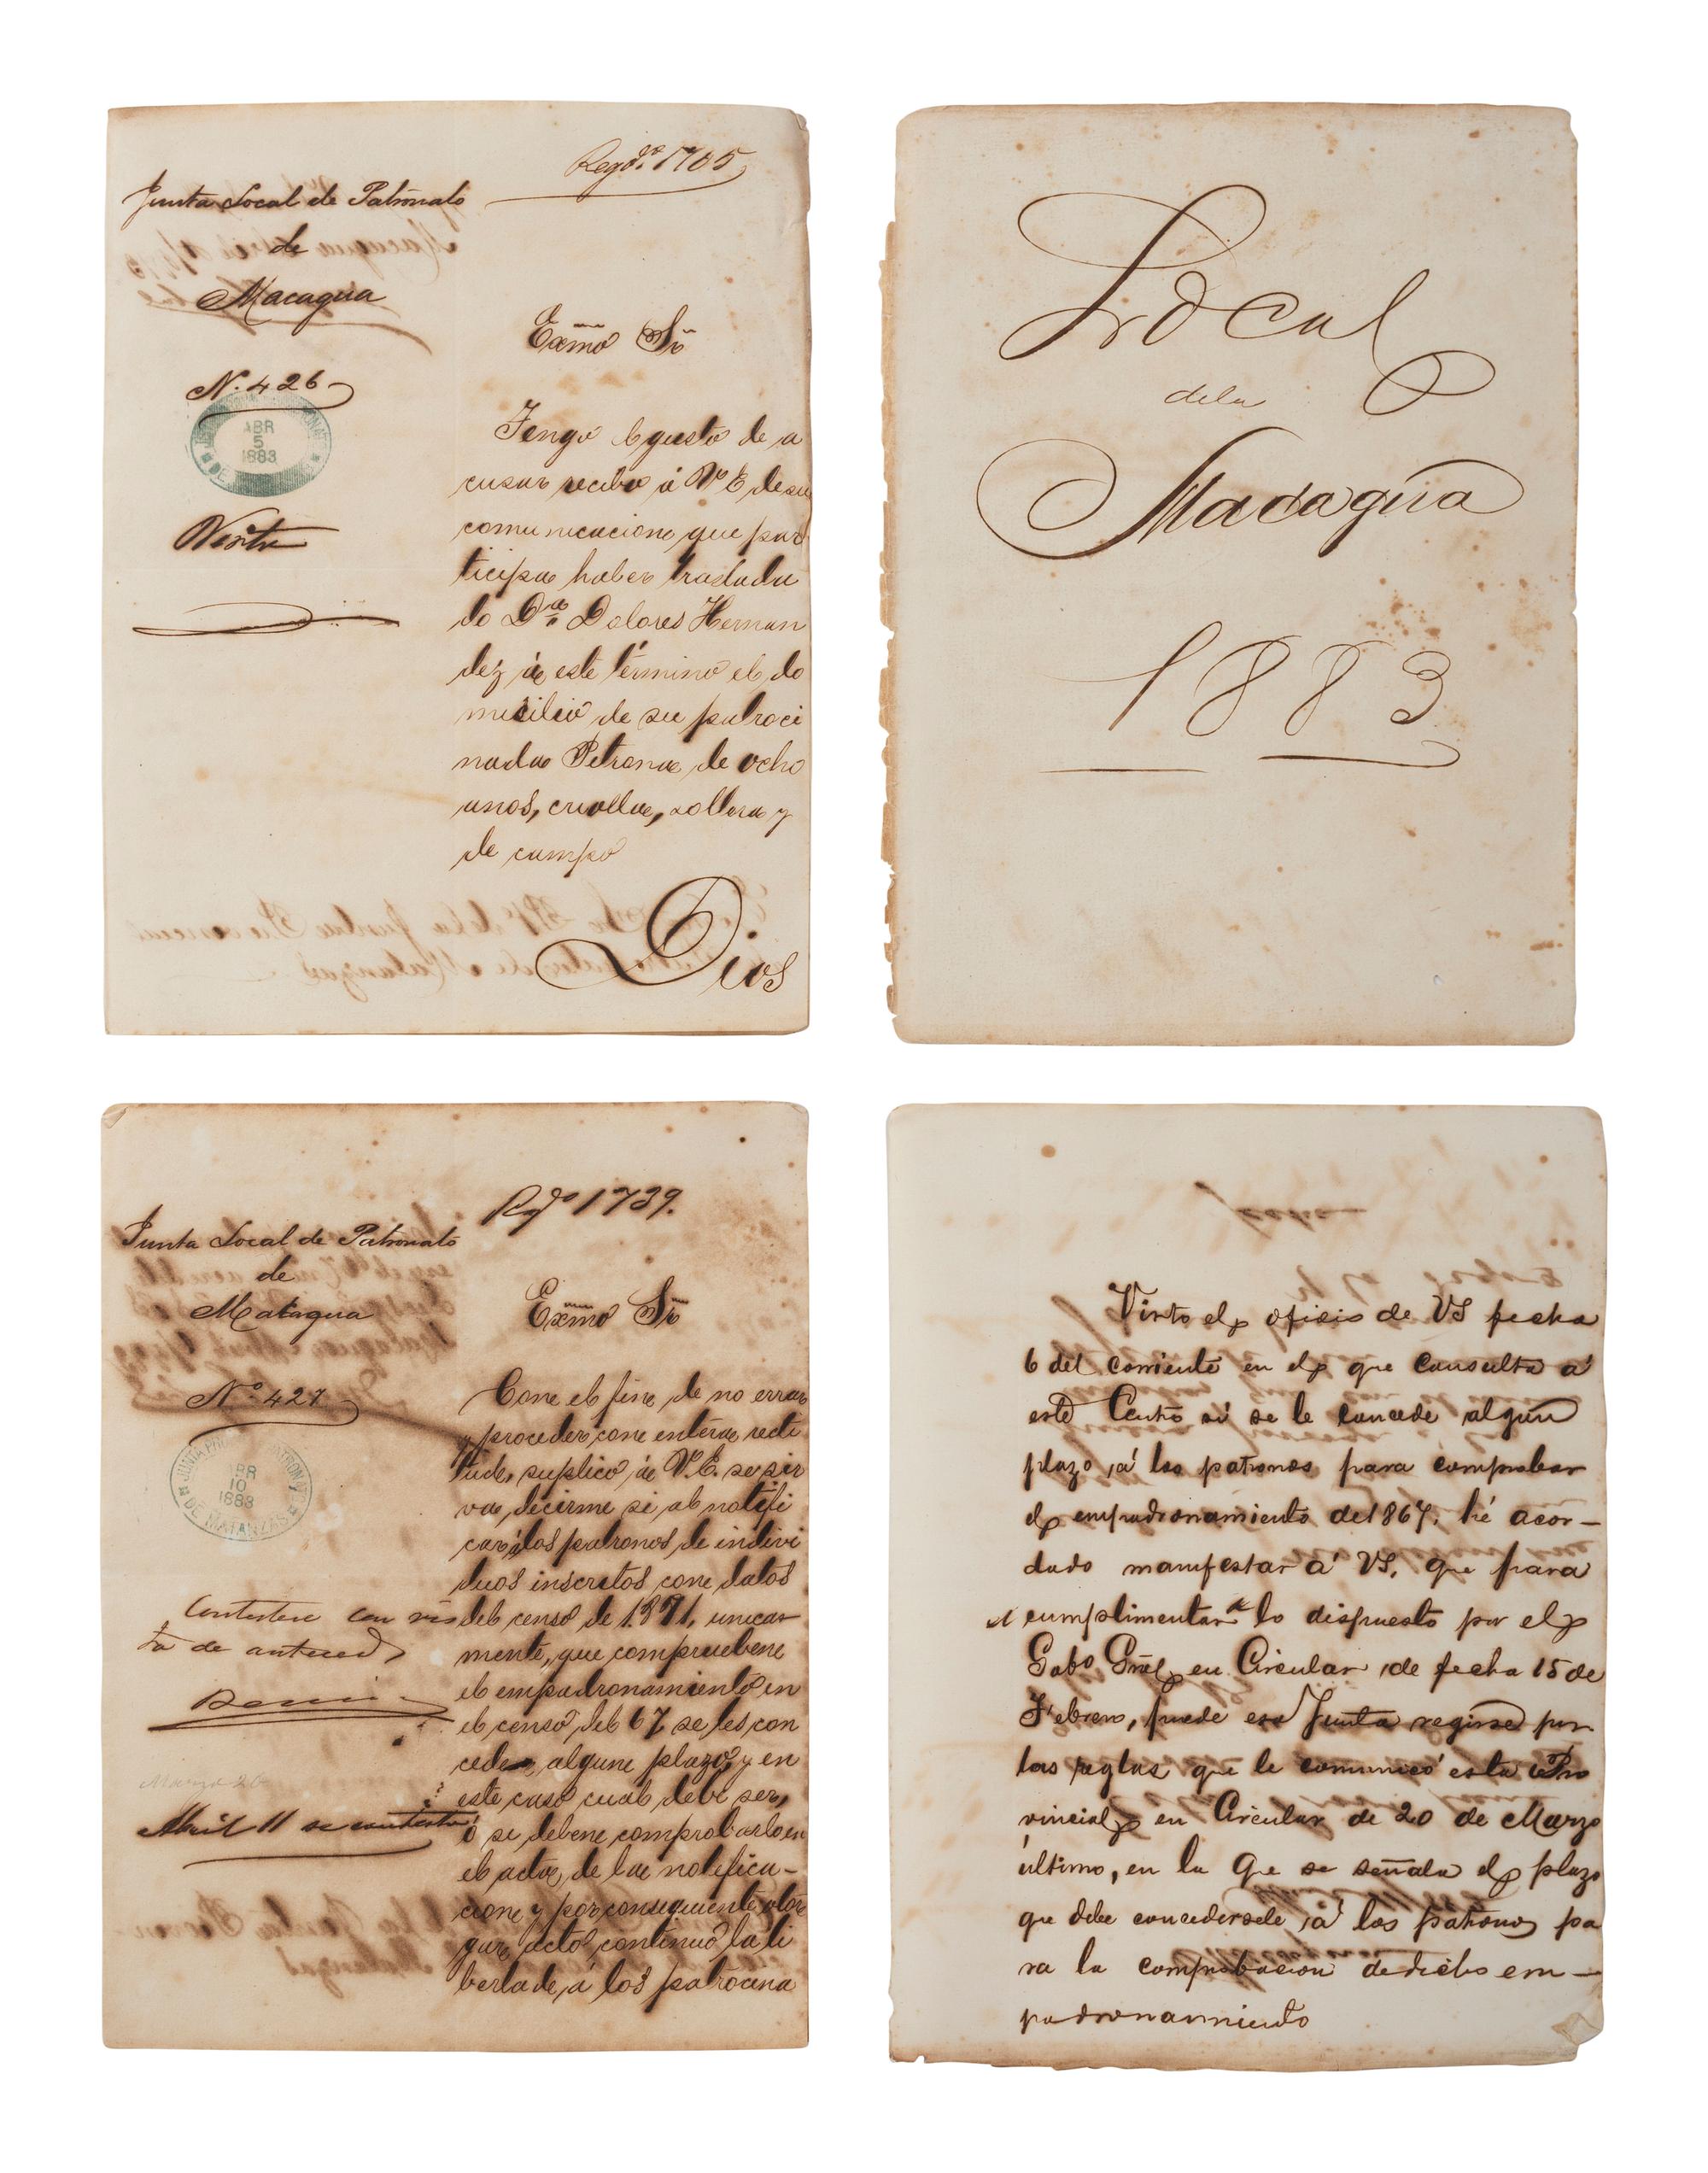 Regdº 1705
Junta Local de Patronato
de
Macagua
Exmo Sr
N. 426
ABR
5
1883
Visto
Tengo el gusto de a
cusar recibo á V. E. de su
comunicacion que par
ticipa haber traslada
do Dª Dolores Hernan
dez á este término el do
micilio de su patroci
nada Petrona de ocho
anos, criolla, soltera y
de campo
Dios
Local
dela
Macagua
1883
Rgdo 1739.
Junta Local de Patronato
de
Macagua
Exmo Sr
Nº 427
JUNTA PROVINCIAL DE PATRONATO
DE MATANZAS
ABR
10
1883
Con el fin de no errar
y proceder con entera recti
tud, suplico á V. E. se sir
va, decirme si al notifi
car á los patronos de indivi
duos inscritos con datos
del censo de 1871, unica
mente, que comprueben
el empadronamiento en
el censo del 67 se les con
cede algun plazo, y en
este caso cual debe ser,
ó si deben comprobarlo en
el acto, de la notifica-
cion y por consiguiente otor
gar acto continuo la li
bertad, á los patrocina
Contestese con vis
ta de anteced
Marzo 20
Abril 11 se contestó
Visto el oficio de VS fecha
6 del corriente en el que consulta á
este Centro si se le concede algun
plazo á los patronos para comprobar
el empadronamiento de 1867, hé acor-
dado manifestar á VS, que para
cumplimentar lo dispuesto por el
Gobo Gral en Circular de fecha 15 de
Febrero, puede esa Junta regirse por
las reglas que le comunicó esta Pro
vincial en Circular de 20 de Marzo
último, en la qe se señala el plazo
que debe concedersele á los patronos pa
ra la comprobacion de dicho em-
padronamiento